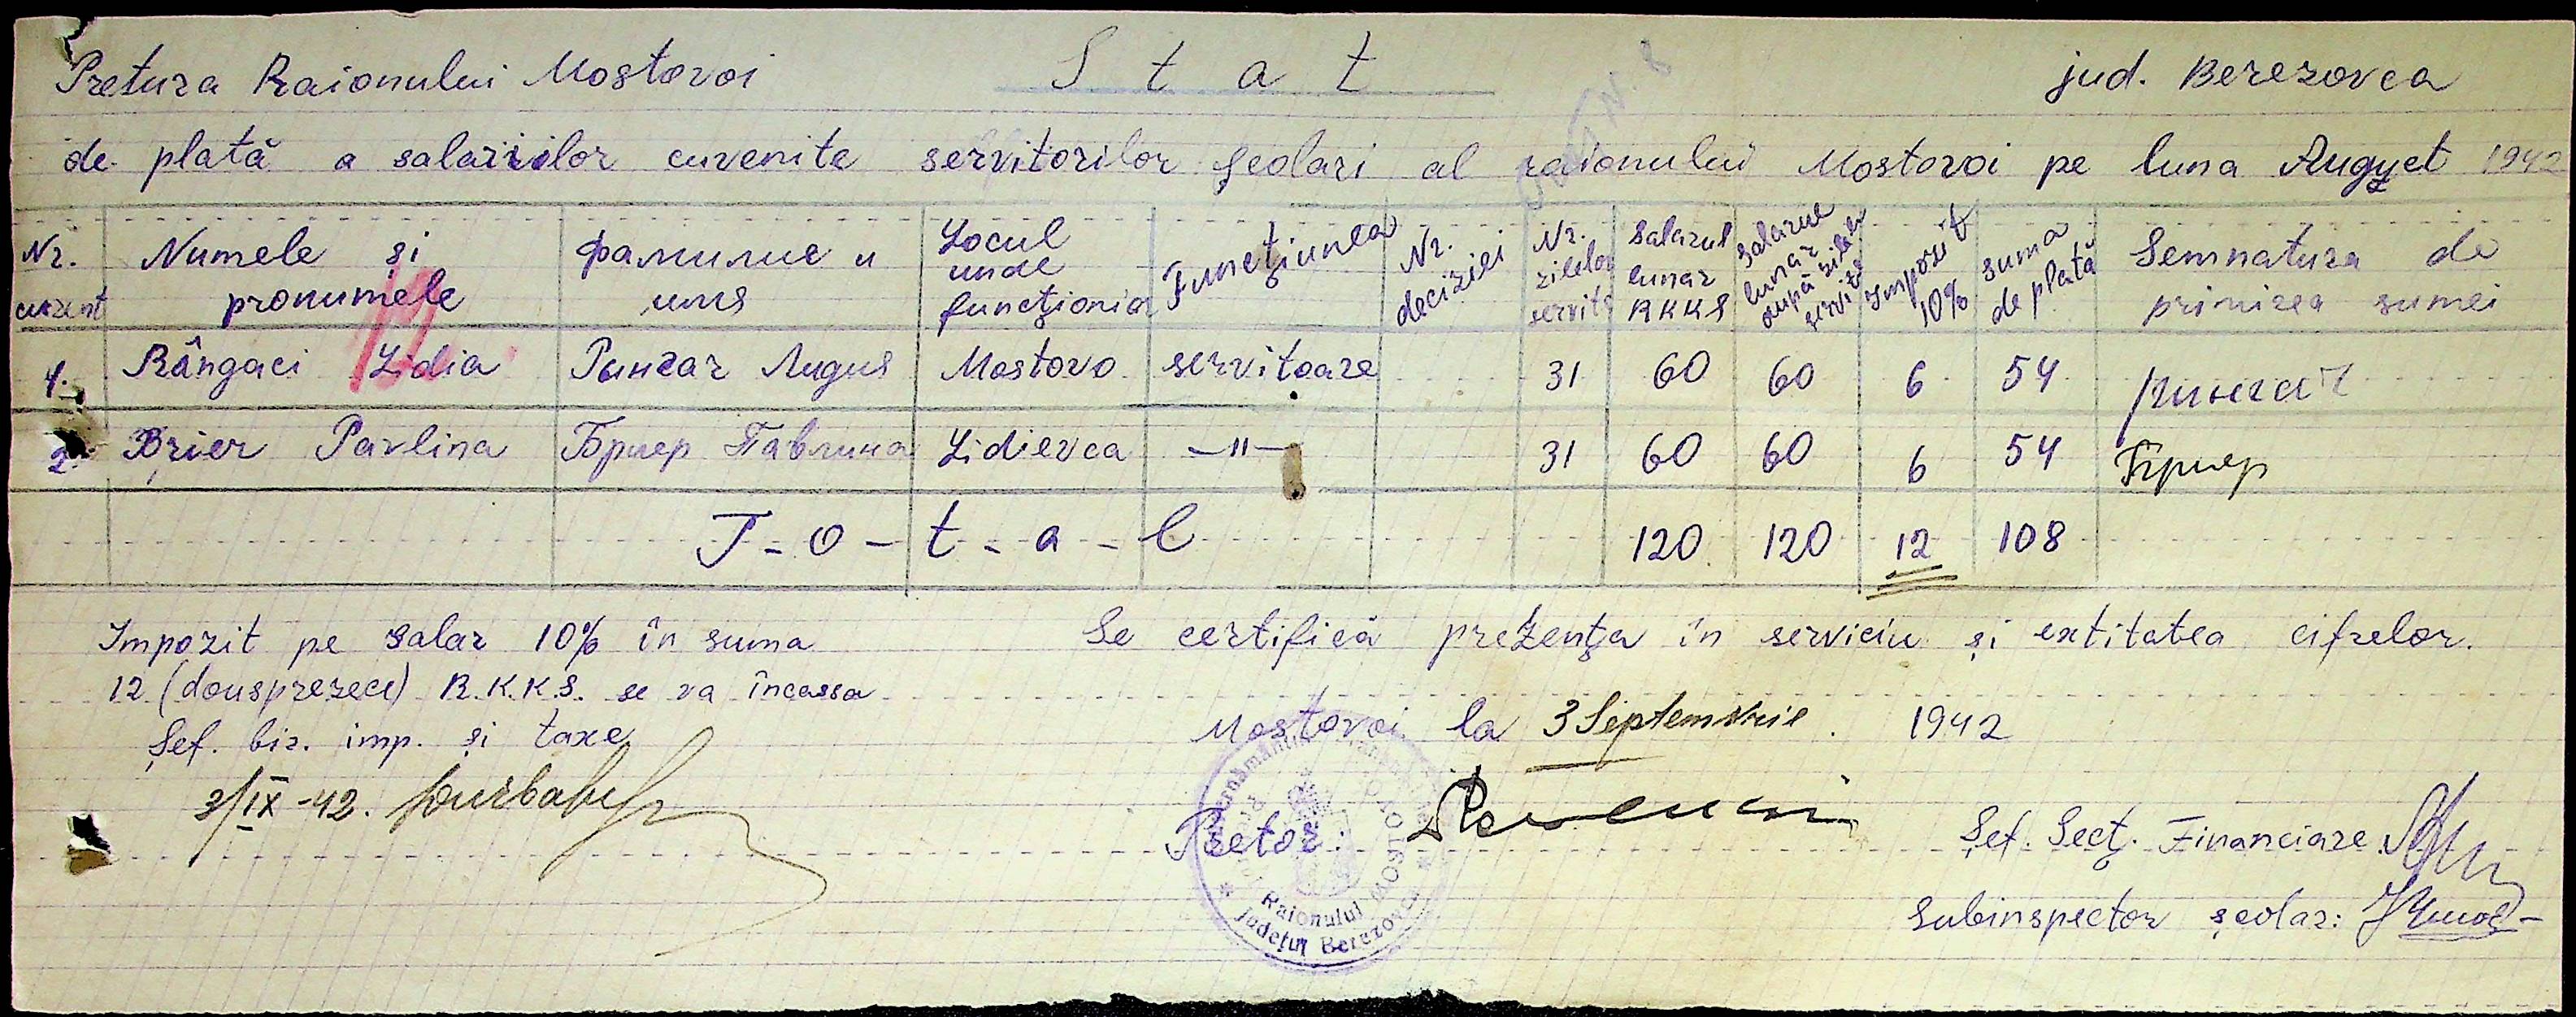 Pretura Raionului Mostovoi S t a t jud. Berezovca
de plată a salariilor cuvenite servitorilor școlari al raionului Mostovoi pe luna August 1942
Nr. curent Numele și pronumele Фамилие и имя Locul unde funcționia Funcțiunea Nr. deciziei Nr. zilelor servite Salarul lunar RKKS Salarul lunar după zilele servite Impozit 10% suma de plată Semnatura de primirea sumei
1. Rângaci Lidia Рингач Лидия Mostovo servitoare 31 60 60 6 54 Рингач
2. Brier Pavlina Бриер Павлина Lidievca —"— 31 60 60 6 54 Бриер
T - o - t - a - l 120 120 12 108
19
Impozit pe salar 10% în suma
12 (dousprezece) R.K.K.S. se va încassa
Șef. bir. imp. și taxe
3/IX-42.
Se certifică prezența în serviciu și extitatea cifrelor.
Mostovoi la 3 Septembrie. 1942
Pretor:
Raionului MOSTOVOI
Județul Berezovca
Șef. Secț. Financiare
Subinspector școlar: